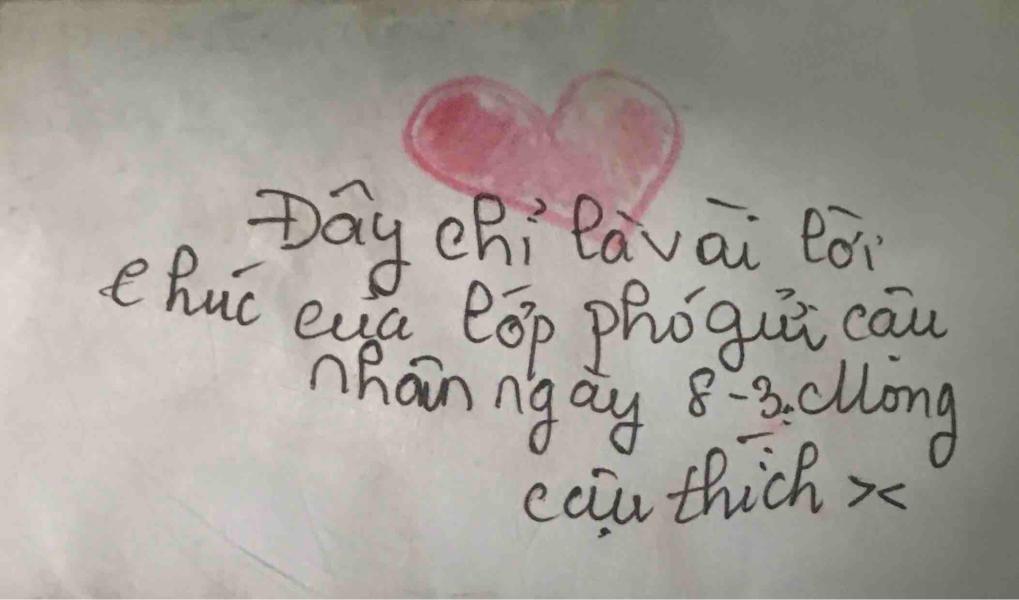 Đây chỉ là vài lời
chúc của lớp phó gửi cậu
nhân ngày 8-3. Mong
cậu thích ><